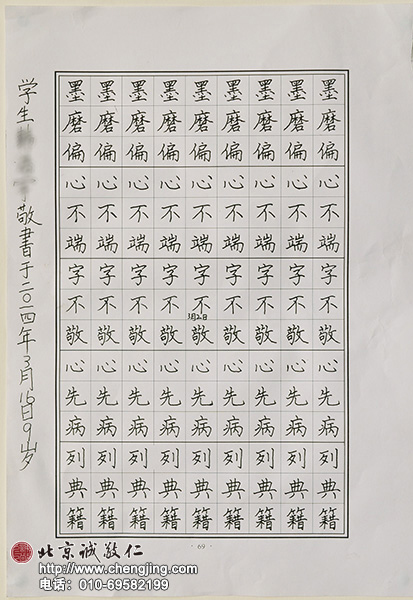 墨磨偏心不端字不敬心先病列典籍
墨磨偏心不端字不敬心先病列典籍
墨磨偏心不端字不敬心先病列典籍
墨磨偏心不端字不敬心先病列典籍
墨磨偏心不端字不敬心先病列典籍
3月2日
墨磨偏心不端字不敬心先病列典籍
墨磨偏心不端字不敬心先病列典籍
墨磨偏心不端字不敬心先病列典籍
墨磨偏心不端字不敬心先病列典籍
学生 敬書于二〇一四年3月16日9岁
· 69 ·
北京诚敬仁
http://www.chengjing.com
电话：010-69582199